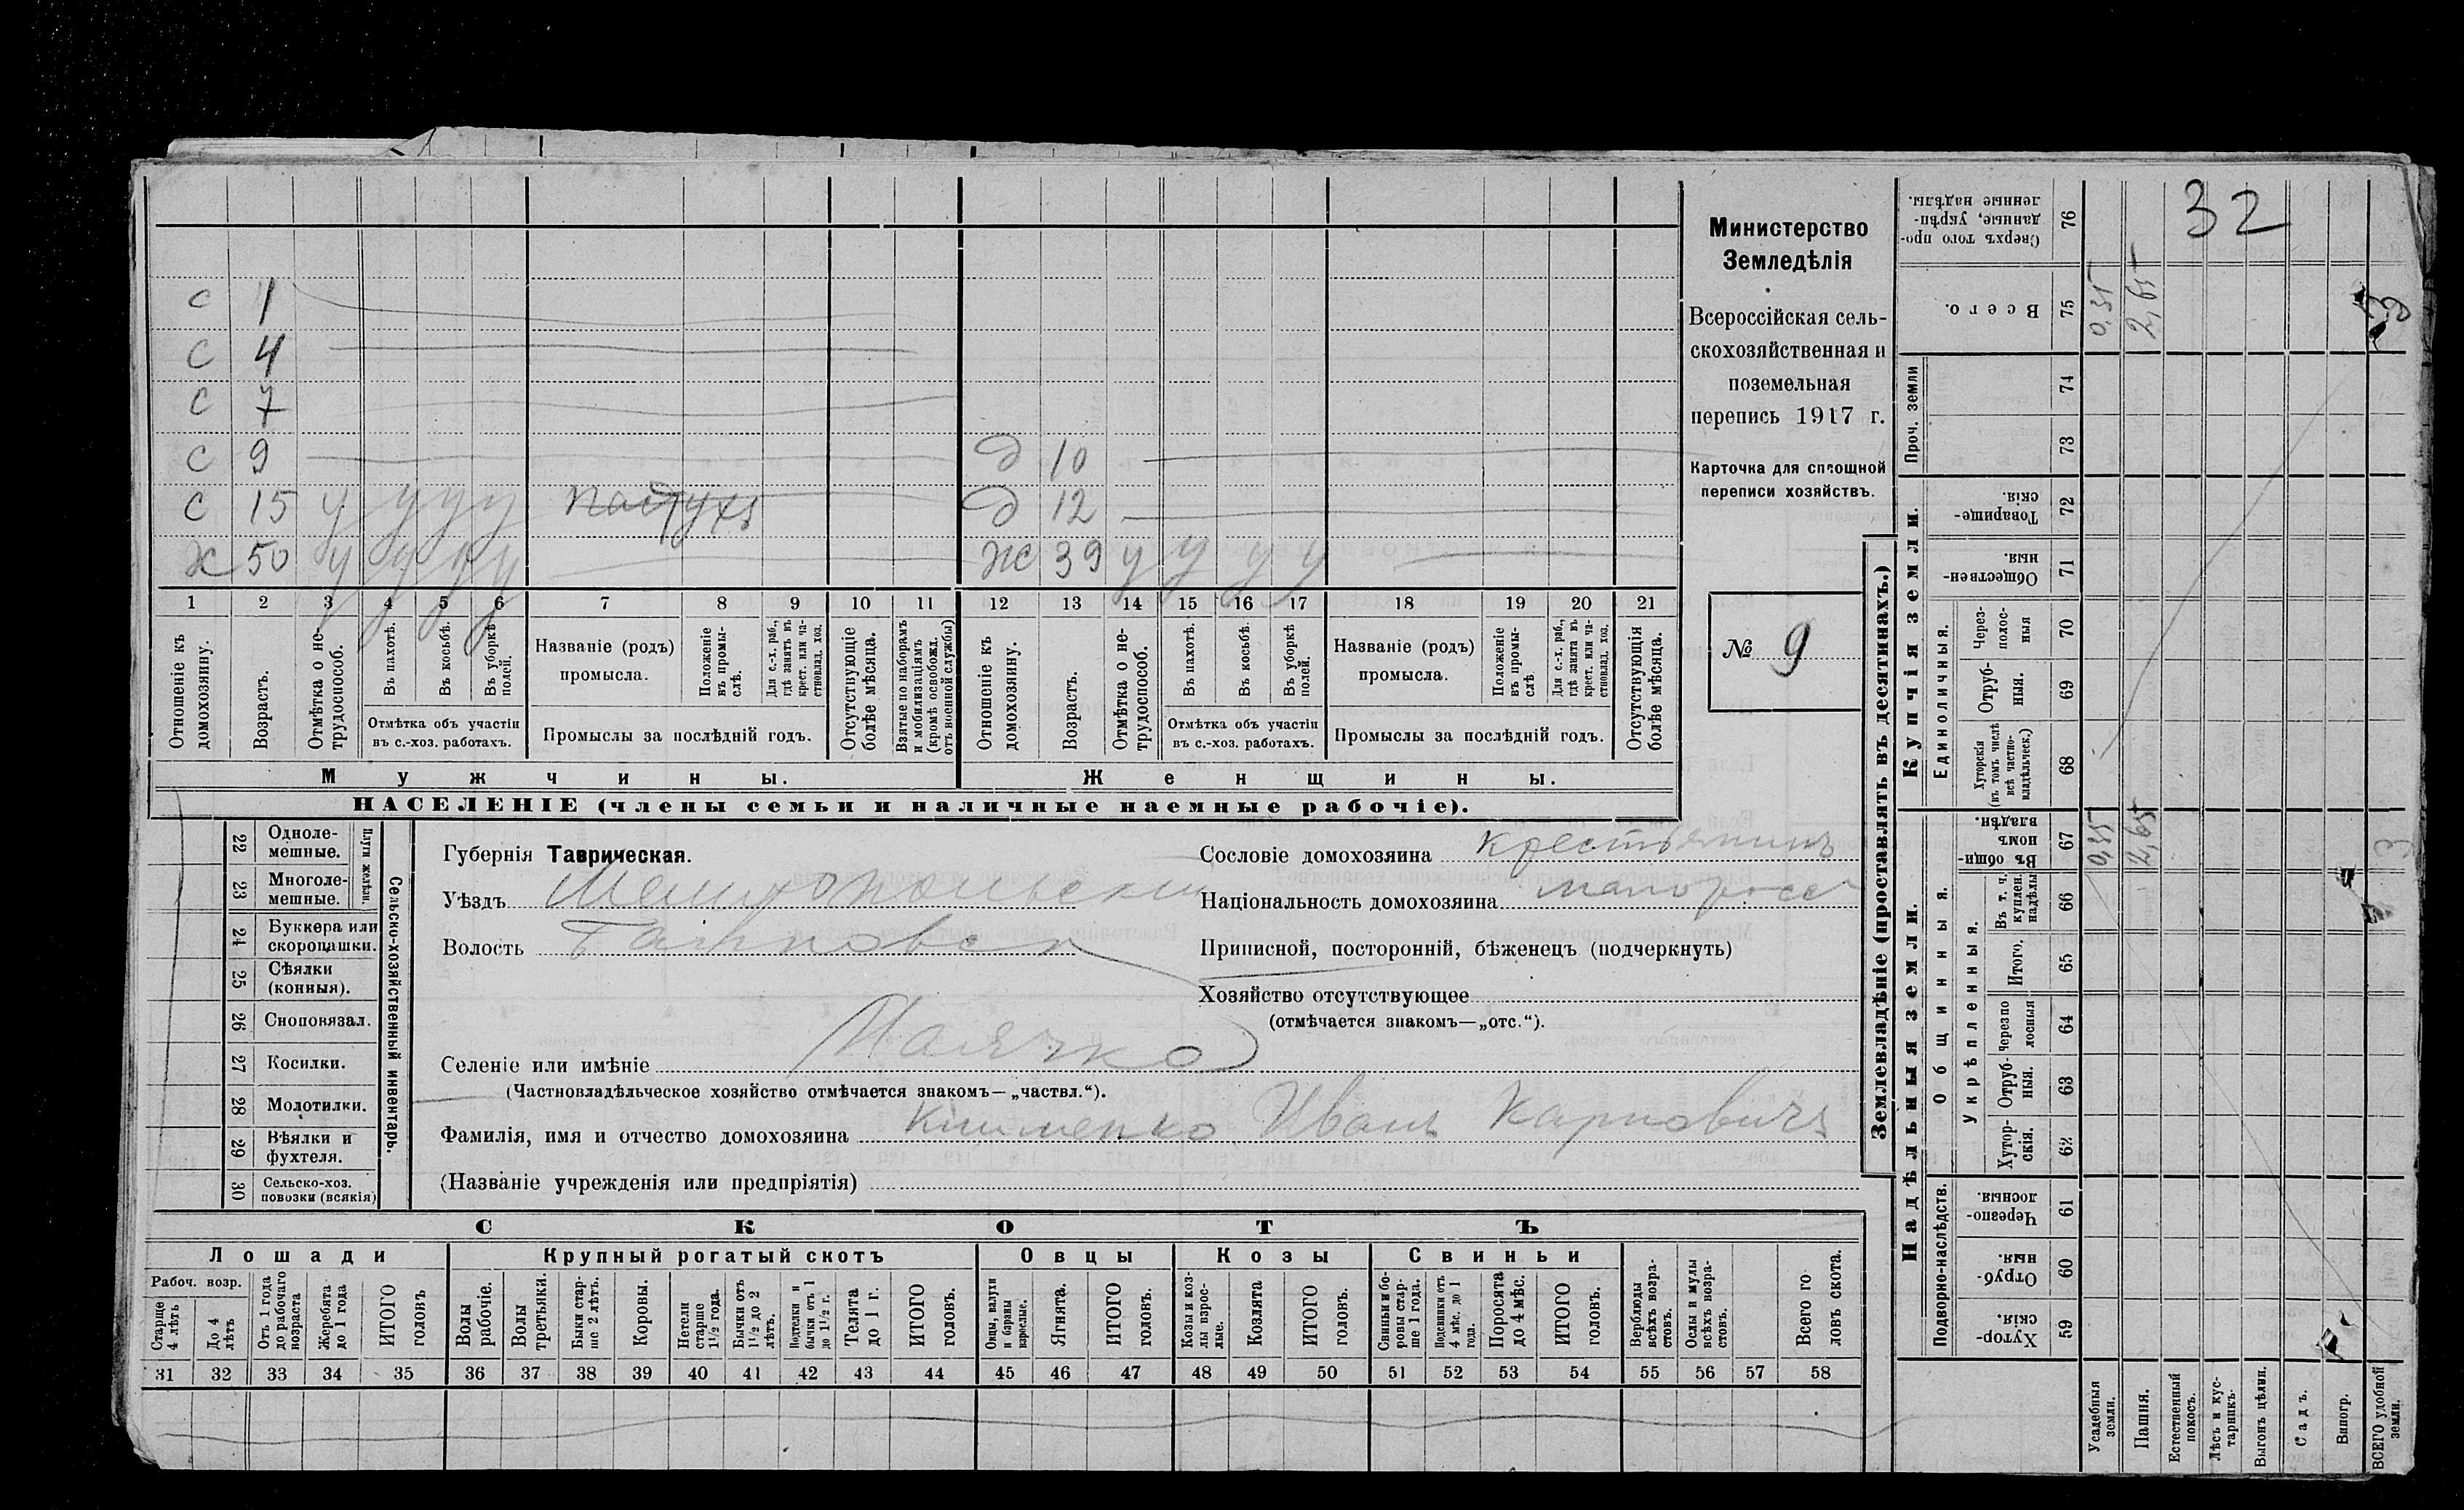 32
Министерство
Земледѣлія
Всероссійская сель-
скохозяйственная и
поземельная
перепись 1917 г.
Карточка для сплошной
переписи хозяйствъ.
№ 9
с 1
с 4
с 7
с 9
с 15 у у у у пастухъ
х 50 у у у у
д 10
д 12
ж 39 у у у у
1 2 3 4 5 6 7 8 9 10 11 12 13 14 15 16 17 18 19 20 21
Отношеніе къ домохозяину.
Возрастъ.
Отмѣтка о не-трудоспособ.
Въ пахотѣ.
Въ косьбѣ.
Въ уборкѣ полей.
Отмѣтка объ участіи
въ с.-хоз. работахъ.
Названіе (родъ)
промысла.
Положеніе въ промы-слѣ.
Для с.-х. раб., гдѣ занятъ въ крест. или ча-стновлад. хоз.
Промыслы за послѣдній годъ.
Отсутствующіе болѣе мѣсяца.
Взятые по наборамъ и мобилизаціямъ (кромѣ освобожд. отъ военной службы)
Отношеніе къ домохозяину.
Возрастъ.
Отмѣтка о не-трудоспособ.
Въ пахотѣ.
Въ косьбѣ.
Въ уборкѣ полей.
Отмѣтка объ участіи
въ с.-хоз. работахъ.
Названіе (родъ)
промысла.
Положеніе въ промы-слѣ
Для с.-х. раб., гдѣ занята въ крест. или ча-стновлад. хоз.
Промыслы за послѣдній годъ.
Отсутствующія болѣе мѣсяца.
Мужчины.
Женщины.
НАСЕЛЕНІЕ (члены семьи и наличные наемные рабочіе).
Сельско-хозяйственный инвентарь.
Плуги желѣзн.
22 Одноле-мешные.
23 Многоле-мешные.
24 Буккера или скоропашки.
25 Сѣялки (конныя).
26 Сноповязал.
27 Косилки.
28 Молотилки.
29 Вѣялки и фухтеля.
30 Сельско-хоз. повозки (всякія)
Губернія Таврическая.
Уѣздъ Мелитопольскій
Волость
Селеніе или имѣніе Маячка
(Частновладѣльческое хозяйство отмѣчается знакомъ—„частвл.“).
Фамилія, имя и отчество домохозяина Клименко Иванъ Карповичъ
(Названіе учрежденія или предпріятія)
Сословіе домохозяина крестьянинъ
Національность домохозяина малоросс
Приписной, посторонній, бѣженецъ (подчеркнуть)
Хозяйство отсутствующее
(отмѣчается знакомъ—„отс.“).
СКОТЪ
Лошади
Крупный рогатый скотъ
Овцы
Козы
Свиньи
Рабоч. возр.
Старше 4 лѣтъ
До 4 лѣтъ
Отъ 1 года до рабочаго возраста
Жеребята до 1 года
ИТОГО головъ
Волы рабочіе.
Волы третьяки.
Быки стар-ше 2 лѣтъ.
Коровы.
Нетели старше 1½ года.
Бычки отъ 1½ до 2 лѣтъ.
Подтелки и бычки отъ 1 до 1½ г.
Телята до 1 г.
ИТОГО головъ.
Овцы, валухи и бараны взрослые.
Ягнята.
ИТОГО головъ.
Козы и коз-лы взрос-лые.
Козлята
ИТОГО головъ.
Свиньи и бо-ровы стар-ше 1 года.
Подсвинки отъ 4 мѣс. до 1 года.
Поросята до 4 мѣс.
ИТОГО головъ.
Верблюды всѣхъ возра-стовъ.
Ослы и мулы всѣхъ возра-стовъ.
Всего го ловъ скота.
31 32 33 34 35 36 37 38 39 40 41 42 43 44 45 46 47 48 49 50 51 52 53 54 55 56 57 58
Землевладѣніе (проставлять въ десятинахъ.)
Купчія земли.
Надѣльныя земли.
Сверхъ того про-данные, укрѣп-ленные надѣлы. 76
Всего. 75 0,35 2,65
Проч. земли
74
73
Товарище-скія. 72
Обществен-ныя. 71
Единоличныя.
Через-полос-ныя 70
Отруб-ныя. 69
Хуторскія (въ томъ числѣ всѣ частно-владѣльческ.) 68
Общинныя.
Въ общи-номъ владѣн. 67 0,35 2,65
Укрѣпленныя.
Въ т. ч. куплен. надѣлы 66
Итого. 65
Черезпо лосныя 64
Отруб-ныя. 63
Хутор-скія. 62
Подворно-наслѣдств.
Черезпо-лосныя. 61
Отруб-ныя. 60
Хутор-скія. 59
Усадебныя земли.
Пашня.
Естественный покосъ.
Лѣсъ и кус-тарникъ.
Выгонъ цѣлин.
Садъ.
Виногр.
ВСЕГО удобной земли.